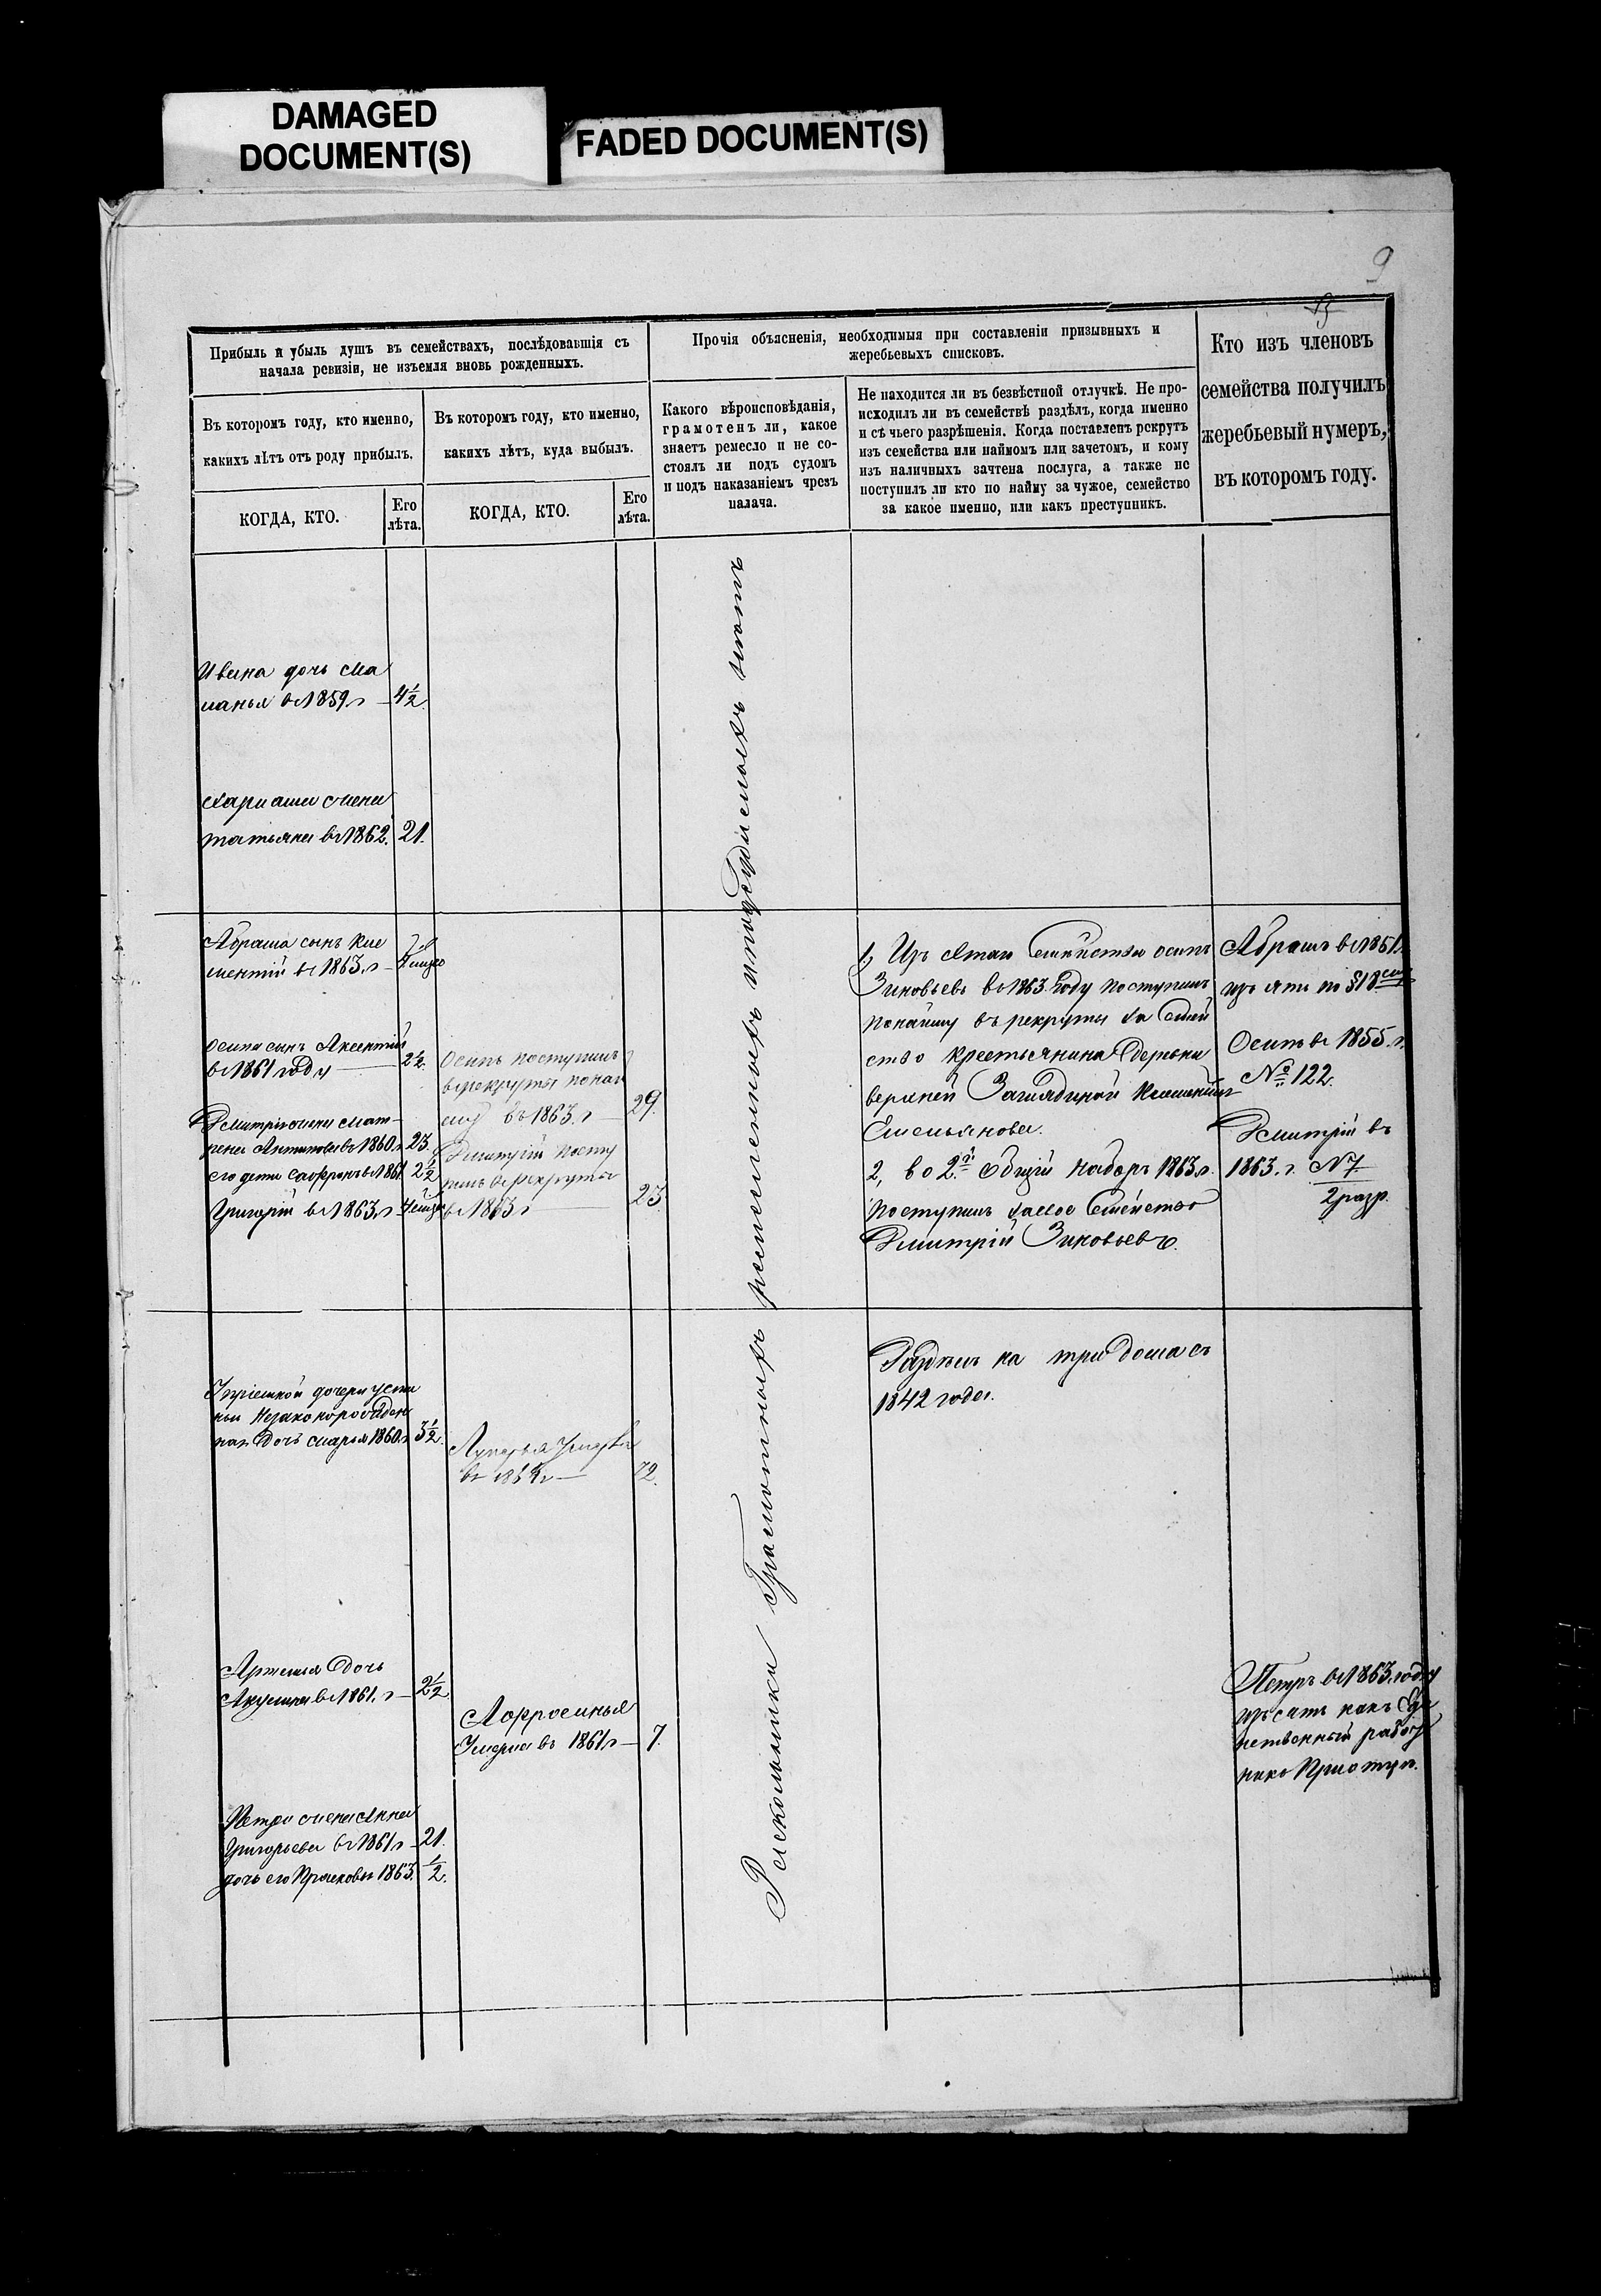 DAMAGED
DOCUMENT(S)
FADED DOCUMENT(S)
9
13
Прибыль и убыль душъ въ семействахъ, послѣдовавшія съ
начала ревизіи, не изъемля вновь рожденныхъ.
Въ которомъ году, кто именно,
какихъ лѣтъ отъ роду прибылъ.
КОГДА, КТО.
Его
лѣта.
Въ которомъ году, кто именно,
какихъ лѣтъ, куда выбылъ.
КОГДА, КТО.
Его
лѣта.
Прочія объясненія, необходимыя при составленіи призывныхъ и
жеребьевыхъ списковъ.
Какого вѣроисповѣданія,
грамотенъ ли, какое
знаетъ ремесло и не со-
стоялъ ли подъ судомъ
и подъ наказаніемъ чрезъ
палача.
Не находится ли въ безвѣстной отлучкѣ. Не про-
исходилъ ли въ семействѣ раздѣлъ, когда именно
и съ чьего разрѣшенія. Когда поставленъ рекрутъ
изъ семейства или наймомъ или зачетомъ, и кому
изъ наличныхъ зачтена послуга, а также не
поступилъ ли кто по найму за чужое, семейство
за какое именно, или какъ преступникъ.
Кто изъ членовъ
семейства получилъ
жеребьевый нумеръ,
въ которомъ году.
Ивана дочь Ма
ланья в 1859 г 4½.
жена
Татьяна в 1862. 21.
Абрама сынъ Кле
ментій в 1863. г
Осипа сынъ Аксентій
в 1861 году 2½.
Дмитрія жена Мат-
рена Антипова в 1860 г 23.
его дети Сафронъ в 1861 2½
Григорій в 1863. г
Осипъ поступилъ
в рекруты по най
му въ 1863. г 29.
Дмитрій посту
пилъ в рекруты
в 1863 г 23.
1, Изъ этаго Семейства осипъ
Зиновьевъ в 1863 Году поступилъ
по найму въ рекруты за Семей
ство крестьянина Деревни
верхней
Емельянова.
2, во 2й общій наборъ 1863 г.
поступилъ за свое Семейство
Дмитрій Зиновьевъ.
Абрамъ в 1851 г.
изъятъ по §18
Осипъ в 1855. г.
№ 122.
Дмитрій въ
1863. г. № 7
2 разр.
дочери усти
ньи Незаконорожден
ная дочь Марья 1860 г 3½.
Лукерья Умерла
72.
Раздѣлъ на три Дома съ
1842 года.
Артемья Дочь
Акулина в 1861. г 2½
Афросинья
Умерла въ 1861 г 7.
Петръ в 1863. году
изъятъ какъ Еди
нственный работ
никъ
Петра жена Анна
Григорьева в 1861 г 21.
дочь его Прасковья 1863. ½.
Раскольники Грамотныхъ ремесленныхъ и подсудимыхъ нетъ